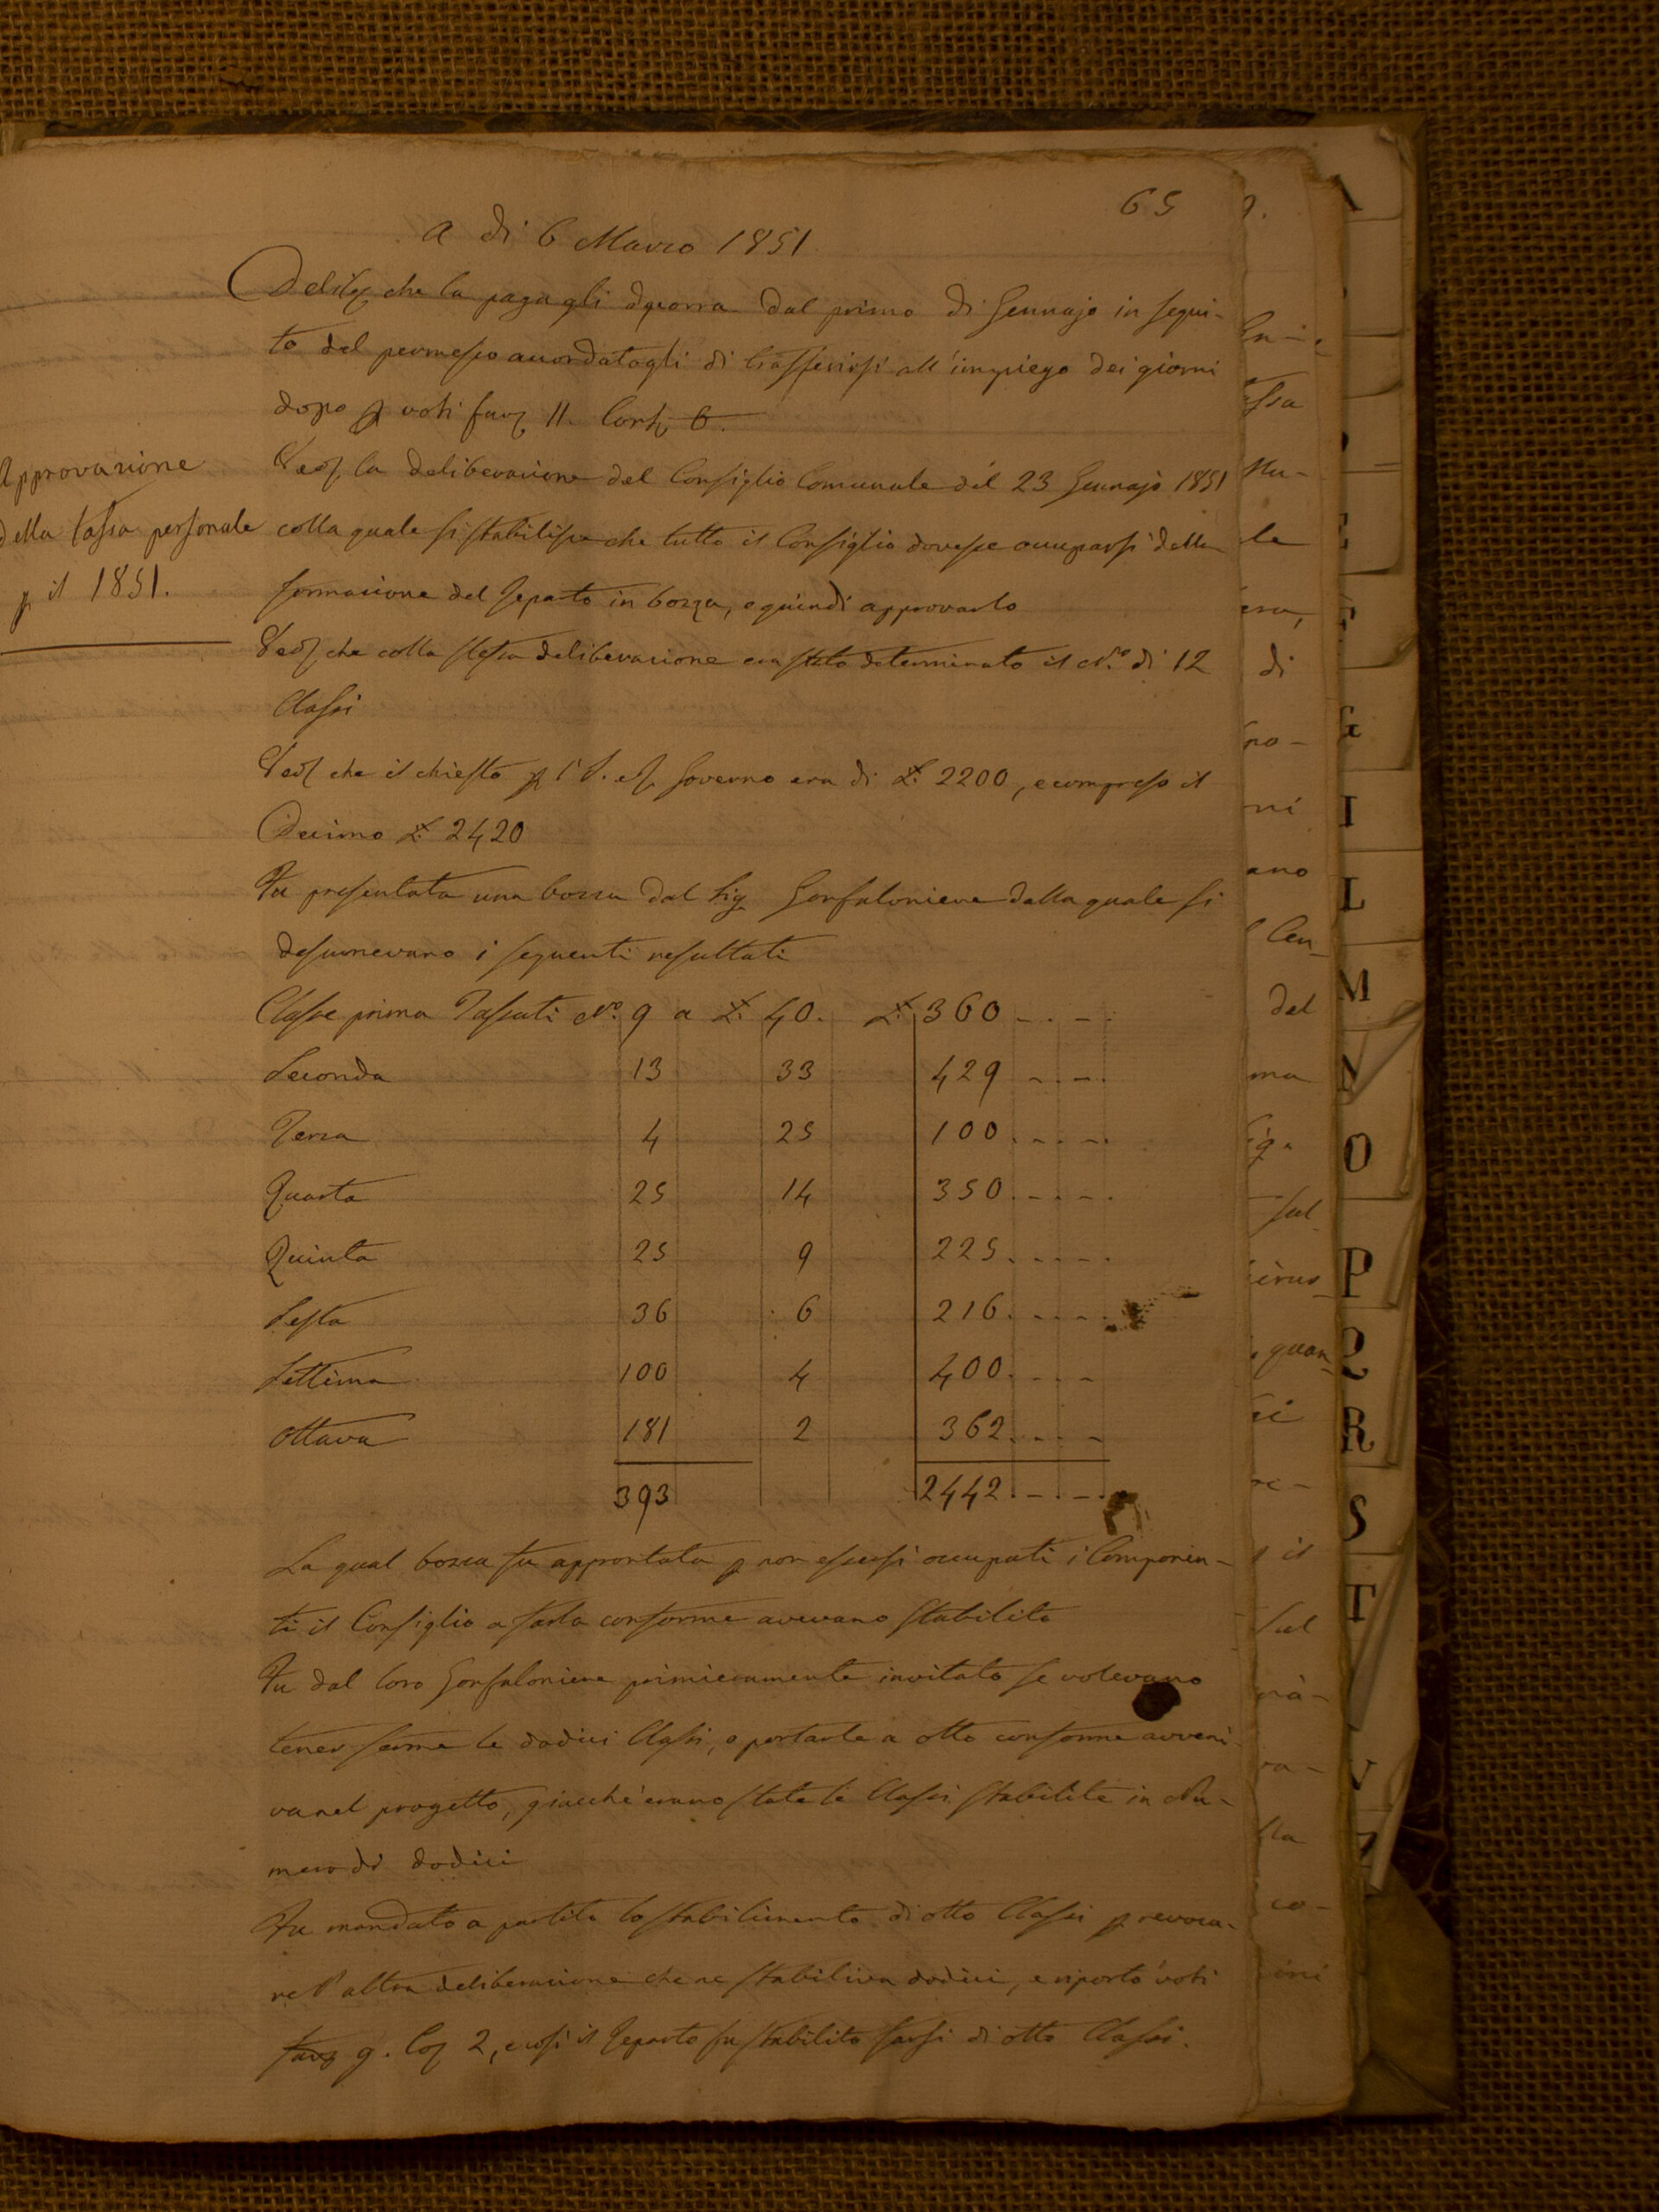 65
a di 6 Marzo 1851
Delib. che la paga gli decorra dal primo di Gennajo in segui-
to del permesso accordatogli di trasferirsi all'impiego dei giorni
dopo p voti fav. 11. Contr. 6.
Approvazione
della tassa personale
p il 1851.
Ved. la deliberazione del Consiglio Comunale del 23 Gennajo 1851
colla quale si stabilisce che tutto il Consiglio dovesse occuparsi della
formazione del Reparto in bozza, e quindi approvarlo
Ved. che colla stessa deliberazione era stato determinato il N.º di 12
Classi
Ved. che il chiesto p Governo era di £. 2200, e compreso il
Decimo £. 2420
Fu presentata una bozza dal Sig. Gonfaloniere dalla quale si
desumevano i seguenti resultati
Classe prima Tassati N.º 9 a £. 40. £. 360
Seconda 13 33 429
Terza 4 25 100
Quarta 25 14 350
Quinta 25 9 225
Sesta 36 6 216
Settima 100 4 400
Ottava 181 2 362
393 2442
La qual bozza fu approntata p non essersi occupati i Componen-
ti il Consiglio a farla conforme avevano stabilito
Fu dal loro Gonfaloniere primieramente invitato se volevano
tener ferme le dodici Classi, o portarle a otto conforme avveni-
va nel progetto, giacchè erano state le Classi stabilite in Nu-
mero di dodici
Fu mandato a partito lo stabilimento di otto Classi p revoca-
re l'altra deliberazione che ne stabiliva dodici, e riportò voti
fav. 9. Co. 2, e così il Reparto fu stabilito farsi di otto Classi.
E
F
G
I
L
M
N
O
P
Q
R
S
T
V
Z